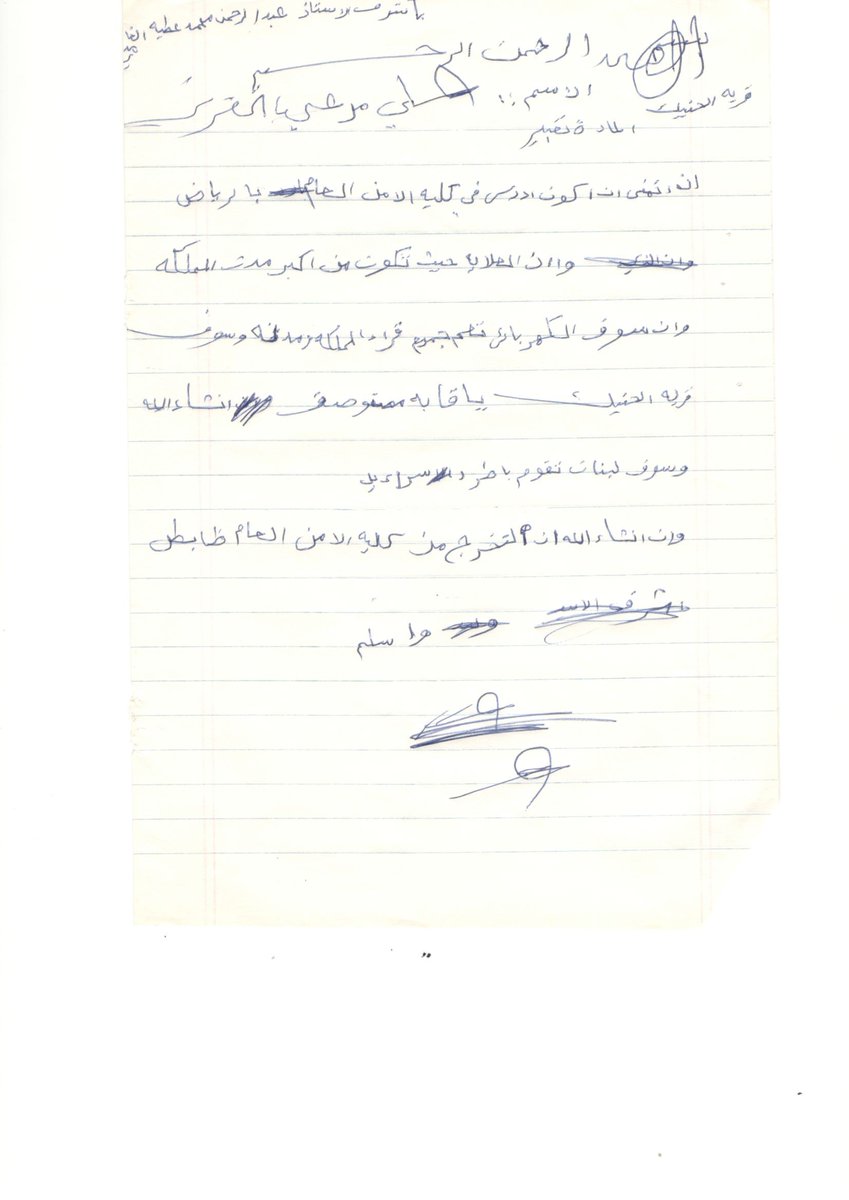 باشراف الاستاذ عبد الرحمن محمد عطيه
بسم الله الرحمن الرحيم
قريه الحنيك
الاسم :: علي مرعي
المادة تعبير
ان اتمنى ان اكون ادرس في كليه الامن العام بالرياض
واان حيث تكون من اكبر مدن المملكه
وان سوف الكهربائي تعلم جميع قراء المملكه ومدنه وسوف
قريه الحنيك مستوصف انشاء الله
وسوف لبنان تقوم باطرد اسراءيل
وان انشاء الله ان اتخرج من كليه الامن العام ظابطن
وا سلم